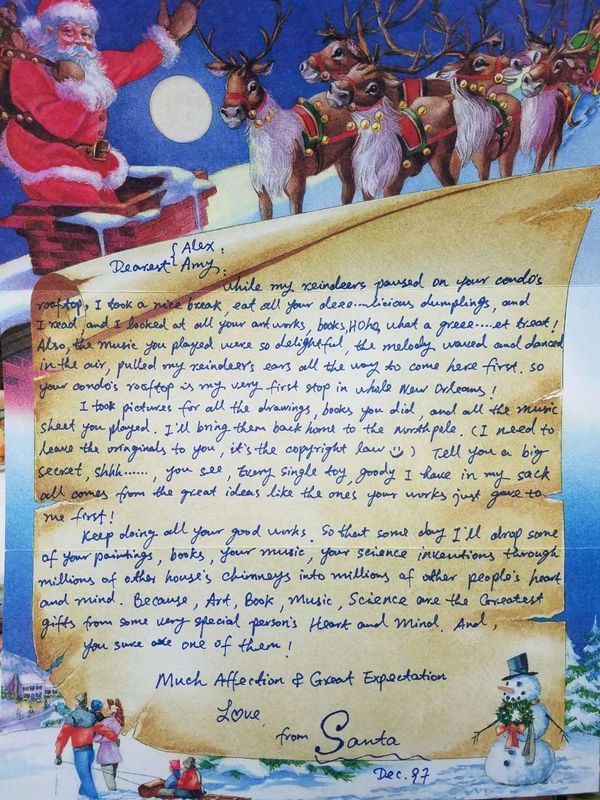 Dearest { Alex :
Amy :
While my reindeers paused on your condo's
rooftop, I took a nice break, eat all your deee....licious dumplings, and
I read, and I looked at all your art works, books, HOho, what a greee....et treat!
Also, the music you played were so delightful, the melody waved and danced
in the air, pulled my reindeers ears all the way to come here first. so
your condo's rooftop is my very first stop in whole New Orleans!
I took pictures for all the drawings, books you did, and all the music
sheet you played. I'll bring them back home to the northpole. (I need to
leave the originals to you, it's the copyright law ☺) Tell you a big
secret, shhh......, you see, Every single toy, goody I have in my sack
all comes from the great ideas like the ones your works just gave to
me first!
Keep doing all your good works. So that some day I'll drop some
of your paintings, books, your music, your science inventions through
millions of other house's chimneys into millions of other people's heart
and mind. Because, Art, Book, Music, Science are the Greatest
gifts from some very special person's Heart and Mind. And,
you sure are one of them!
Much Affection & Great Expectation
Love,
from Santa
Dec. 97